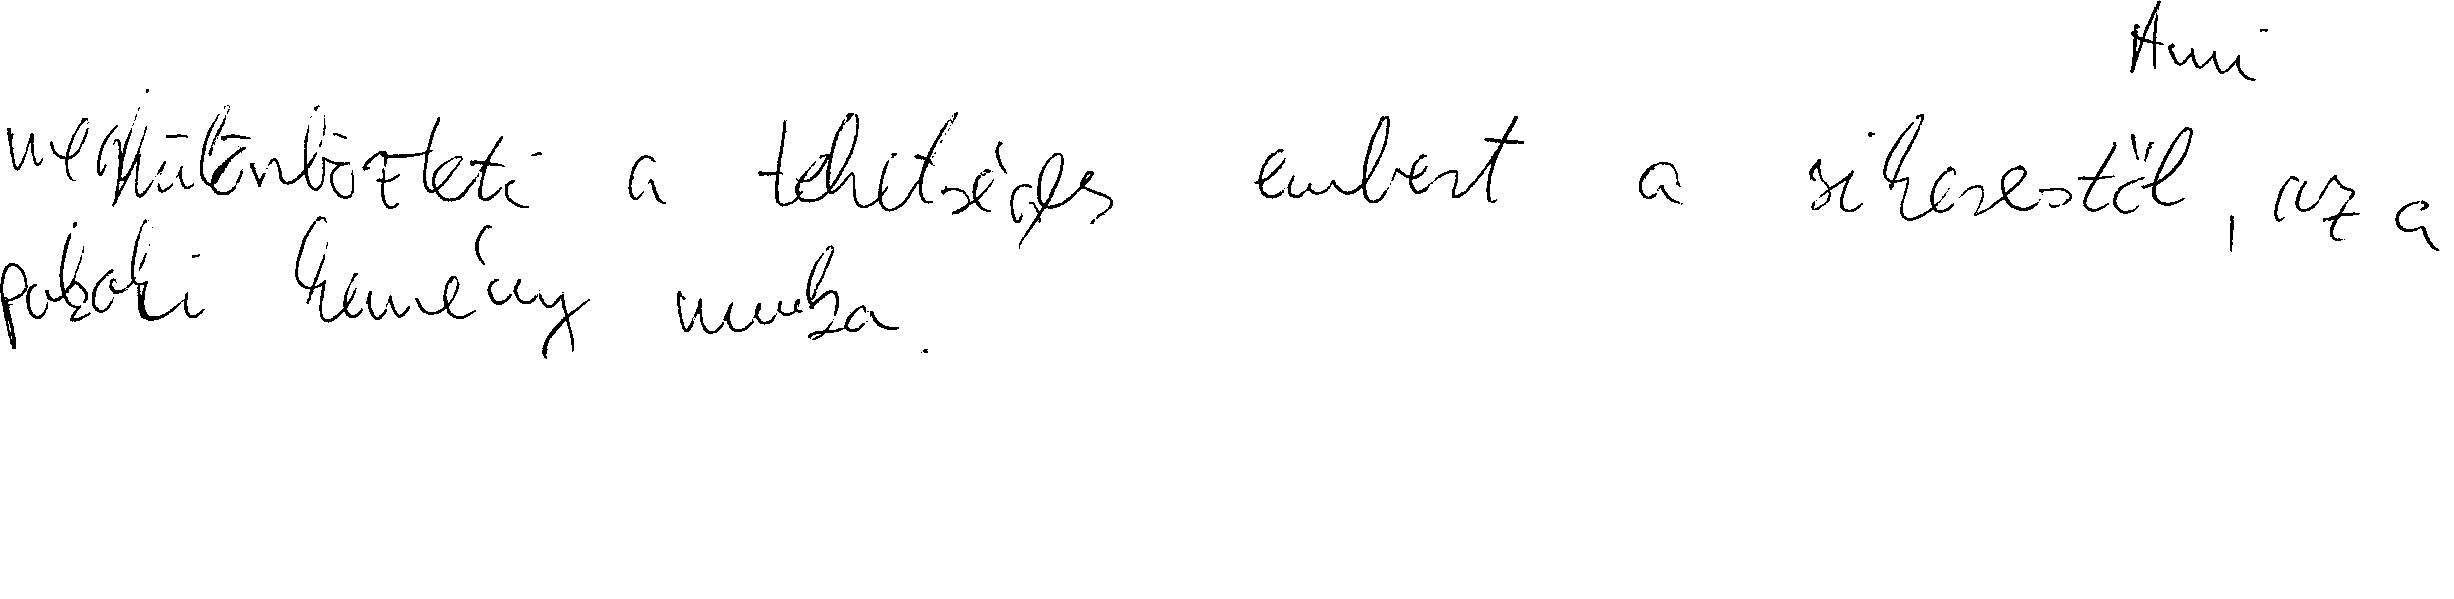 Ami
megkülönbözteti a tehetséges embert a sikerestől, az a
pokoli kemény munka.